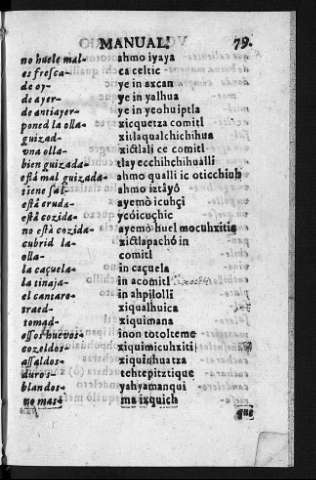 MANUAL. 79.
no huele mal- ahmo iyaya
es fresca- ca celtic
de oy- ye in axcan
de ayer- ye in yalhua
de antiayer- ye in yeohuiptla
poned la olla- xicquetza comitl
guizad- xitlaqualchichihua
vna olla- xictlali ce comitl
bien guizada- tlay ecchihchihualli
està mal guizada- ahmo qualli ic oticchiuh
tiene sal- ahmo iztáyô
està cruda- ayemò icuhçi
està cozida- ycóicuçhic
no està cozida- ayemò huel mocuhxitia
cubrid la- xictlapachó in
olla- comitl
la caçuela- in caçuela
la tinaja- in acomitl
el cantaro- in ahpilolli
traed- xiqualhuica
tomad- xiquimana
essos huevos- inon totolteme
cozeldos- xiquimicuhxiti
assaldos- xiquinhuatza
duros- tehtepitztique
blandos- yahyamanqui
no mas- ma ixquich
què